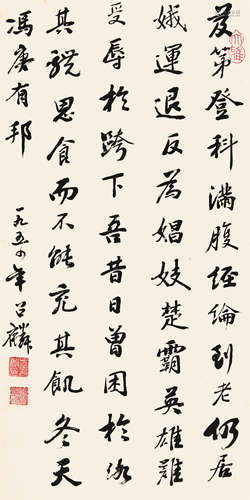 及第登科滿腹經綸到老仍居
娥運退反為娼妓楚霸英雄難
受辱於跨下吾昔日曾困於洛
其體思食而不能充其飢冬天
馮唐有邦
一九五四年呂麟